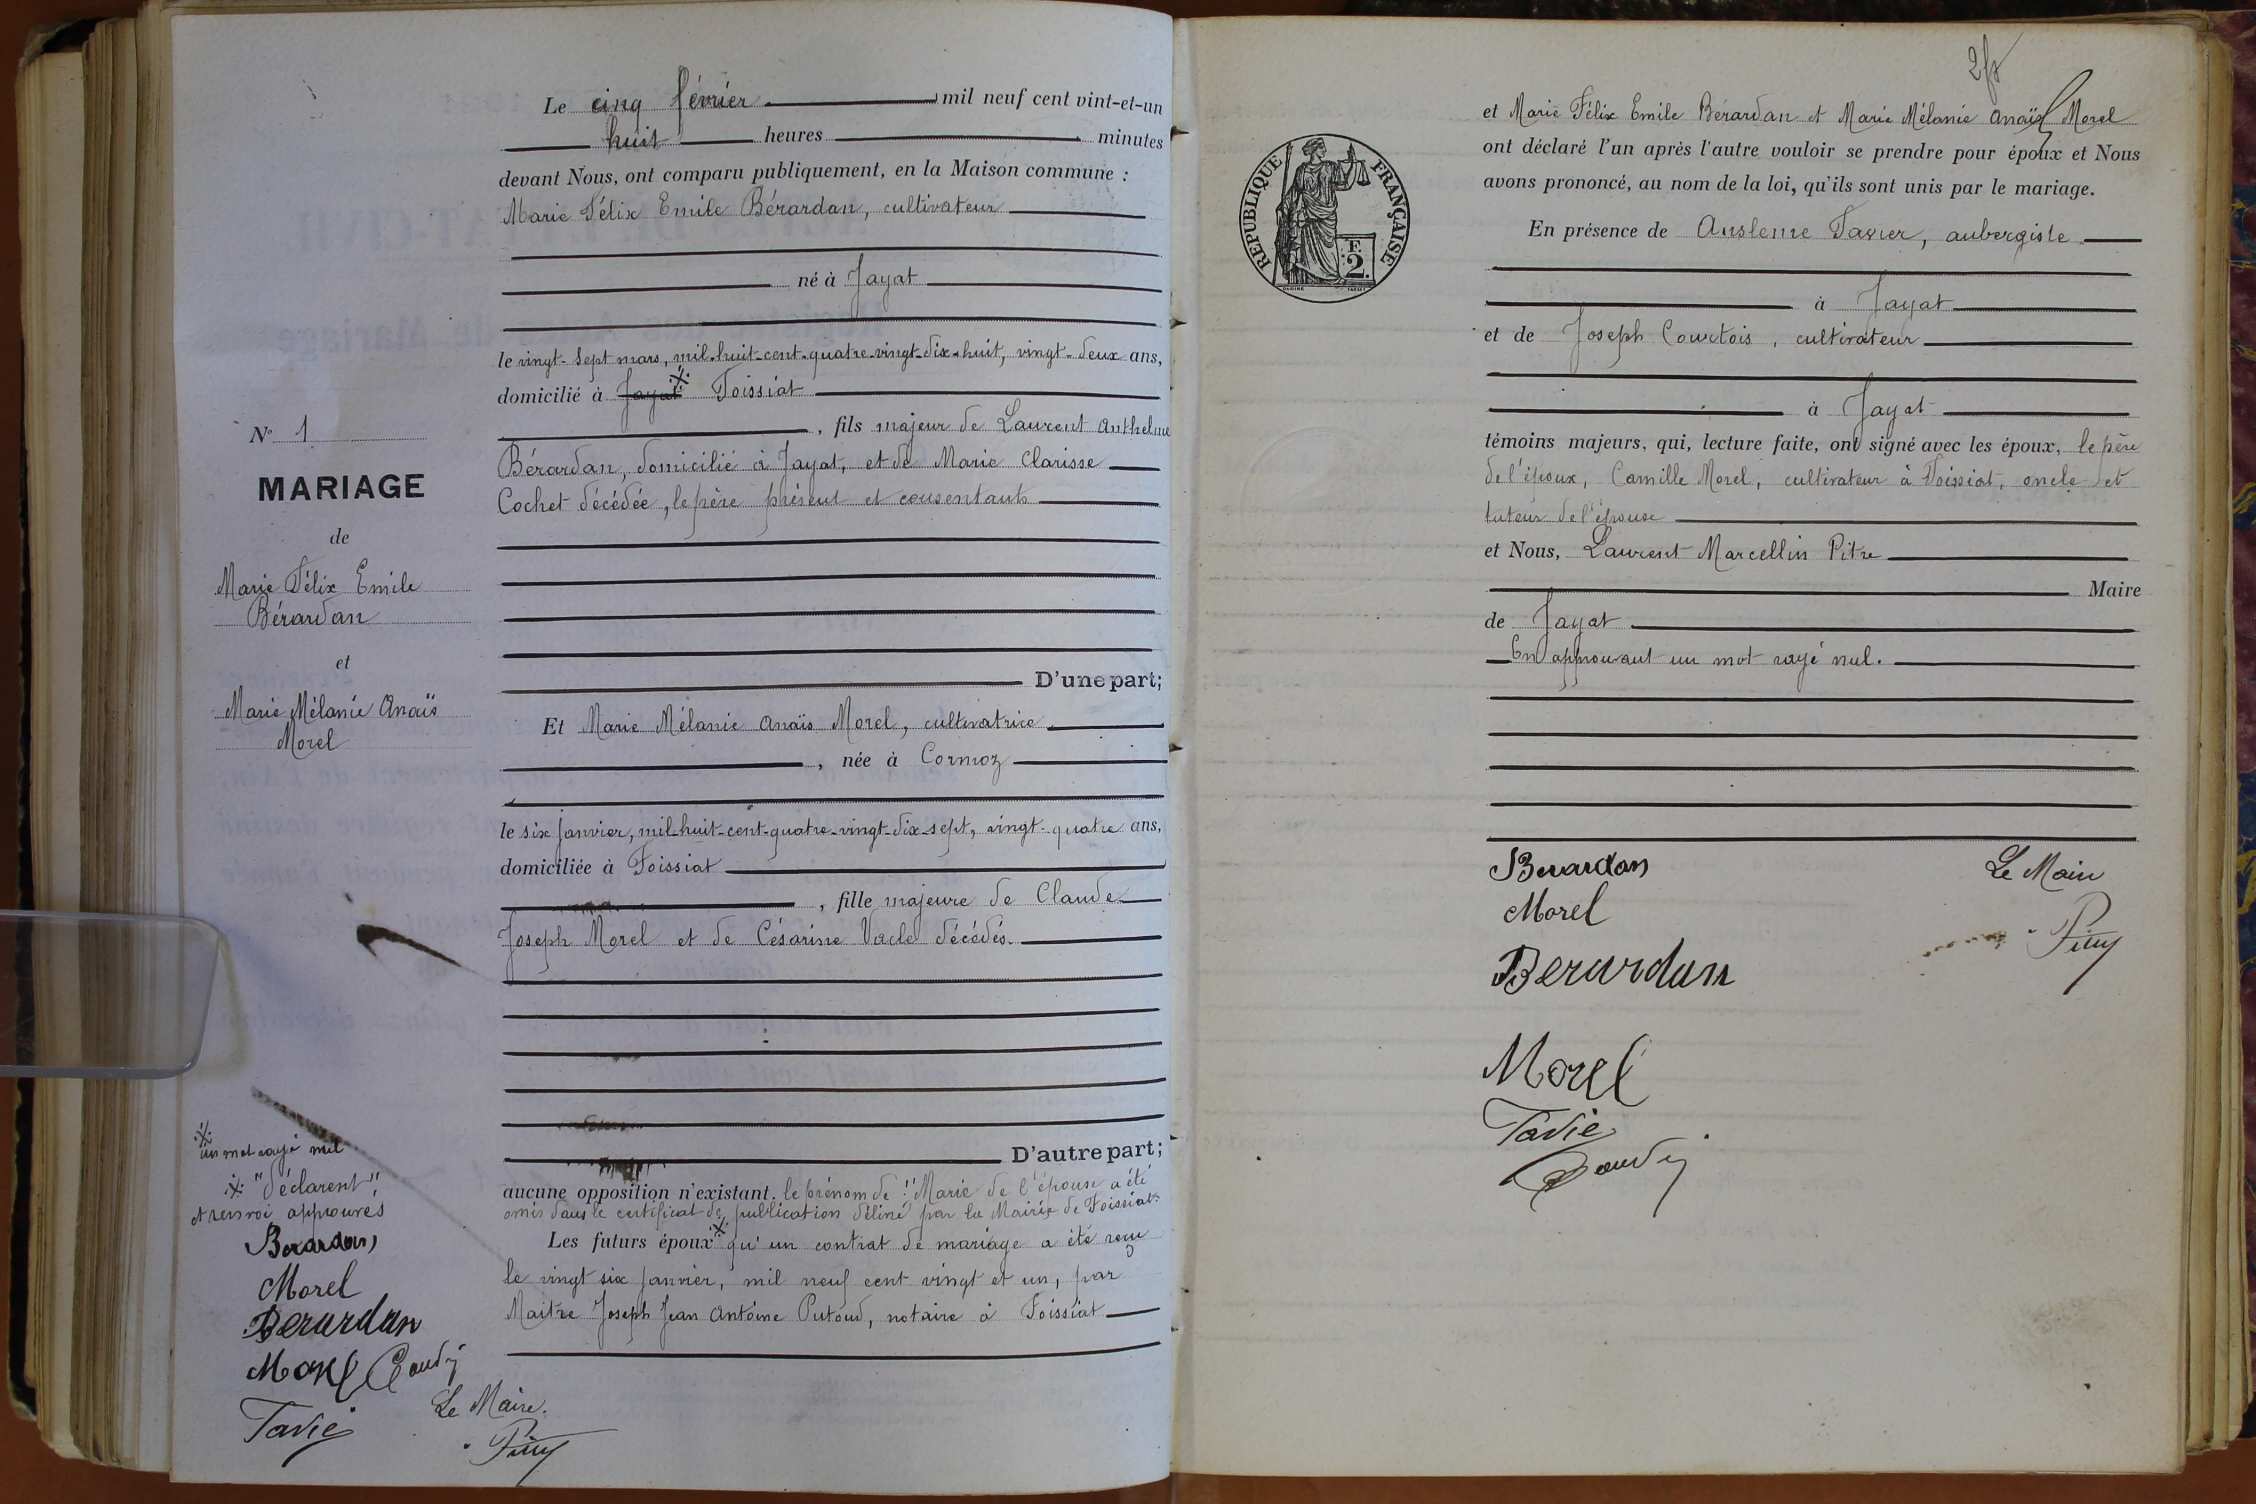 N° 1
MARIAGE
de
Marie Félix Emile
Bérardan
et
Marie Mélanie Anaïs
Morel
un mot rayé nul
"déclarent"
et renvoi approuvés
Berardan
Morel
Berardan
Morel
Tavie
Le Maire.
Le cinq février mil neuf cent vint-et-un
huit heures minutes
devant Nous, ont comparu publiquement, en la Maison commune :
Marie Félix Emile Bérardan, cultivateur
né à Jayat
le vingt-sept mars, mil-huit-cent-quatre-vingt-dix-huit, vingt-deux ans,
domicilié à Jayat Foissiat
, fils majeur de Laurent Anthelme
Bérardan, domicilié à Jayat, et de Marie Clarisse
Cochet décédée, le père présent et consentant
D'une part;
Et Marie Mélanie Anaïs Morel, cultivatrice
, née à Cormoz
le six janvier, mil-huit-cent-quatre-vingt-dix-sept, vingt-quatre ans,
domiciliée à Foissiat
, fille majeure de Claude
Joseph Morel et de Césarine Vacle décédés.
D'autre part;
aucune opposition n'existant. le prénom de "Marie de l'épouse a été
omis dans le certificat de publication délivré par la Mairie de Foissiat.
Les futurs époux qu'un contrat de mariage a été reçu
le vingt six janvier, mil neuf cent vingt et un, par
Maitre Joseph Jean Antoine Putoud, notaire à Foissiat
REPUBLIQUE FRANÇAISE
F.
2.
et Marie Félix Emile Bérardan et Marie Mélanie Anaïs Morel
ont déclaré l'un après l'autre vouloir se prendre pour époux et Nous
avons prononcé, au nom de la loi, qu'ils sont unis par le mariage.
En présence de Ansleme Tavier, aubergiste
à Jayat
et de Joseph Courtois, cultivateur
à Jayat
témoins majeurs, qui, lecture faite, ont signé avec les époux, le père
de l'époux, Camille Morel, cultivateur à Foissiat, oncle et
tuteur de l'épouse
et Nous, Laurent Marcellin Pitre
Maire
de Jayat
En approuvant un mot rayé nul.
Berardan
Le Maire
Morel
Berardan
Morel
Tavie